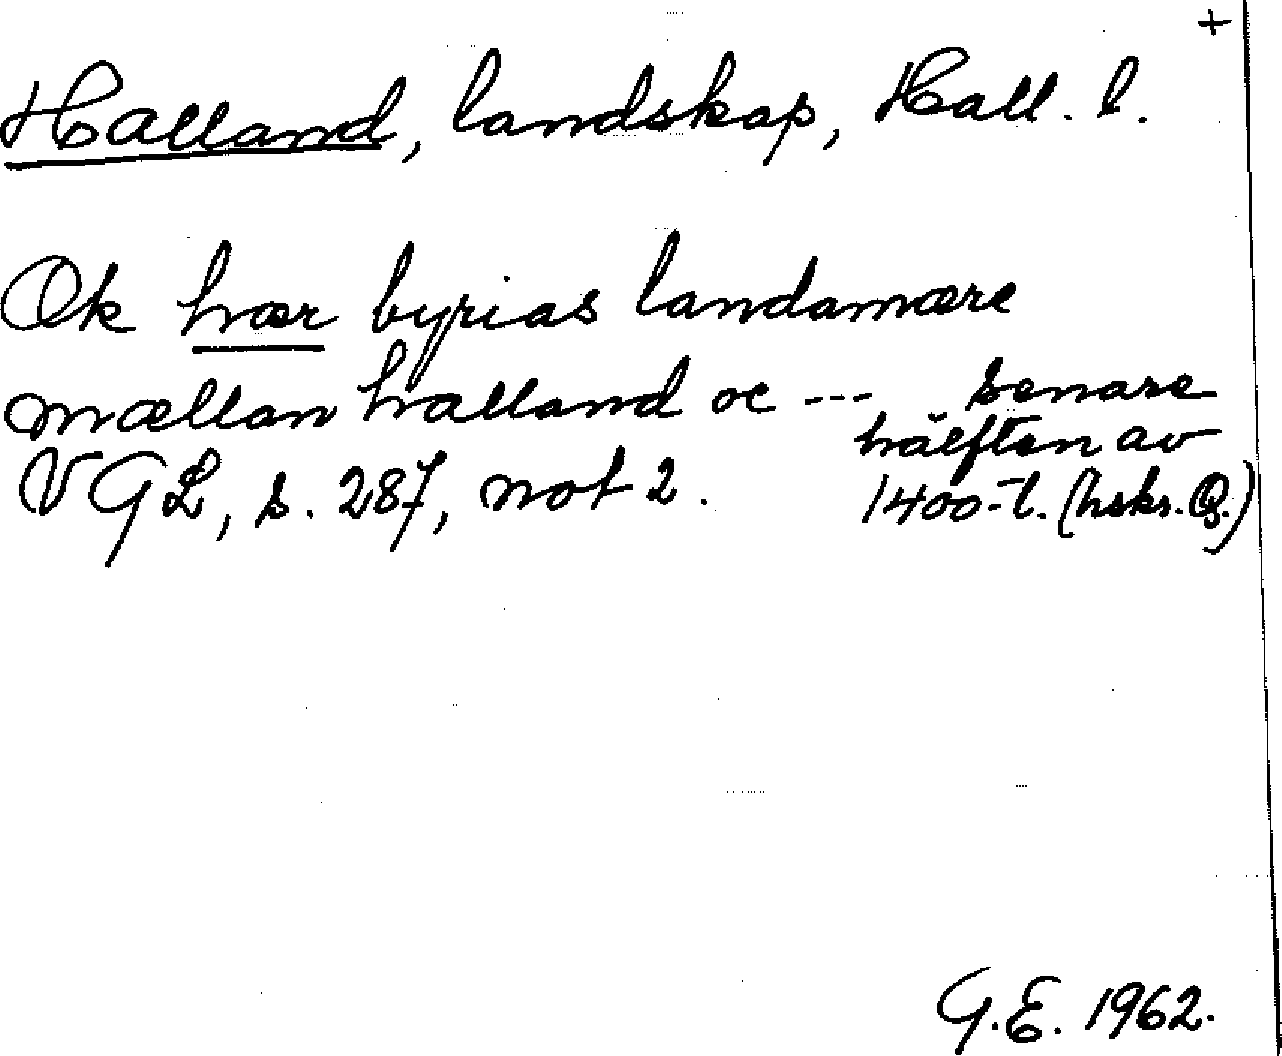 +
Halland, landskap, Hall. l.
Ok hær byrias landamære
mællan halland oc --- senare
hälften av
VGL, s. 287, not 2. 1400-t. (hskr. Q.)
G.E. 1962.